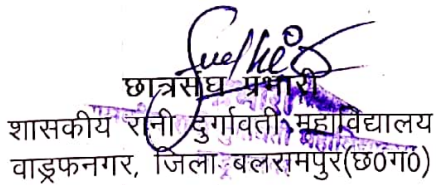 छात्रसंघ प्रभारी
शासकीय रानी दुर्गावती महाविद्यालय
वाड्रफनगर, जिला-बलरामपुर(छ0ग0)